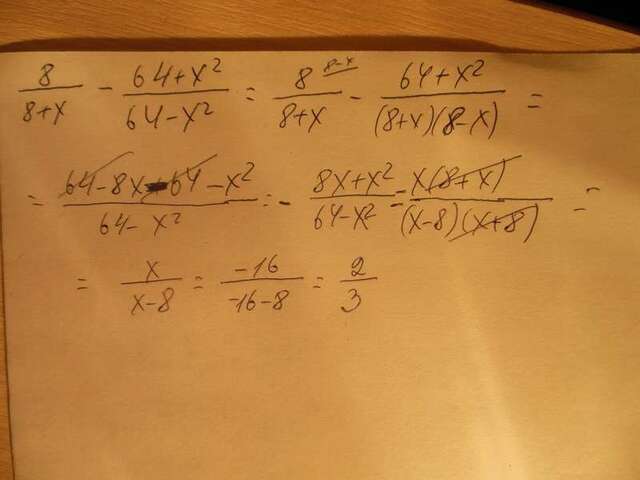 8/(8+x) - (64+x²)/(64-x²) = 8^(8-x)/(8+x) - (64+x²)/((8+x)(8-x)) =
= (64-8x-64-x²)/(64-x²) = - (8x+x²)/(64-x²) = x(8+x)/((x-8)(x+8)) =
= x/(x-8) = -16/(-16-8) = 2/3